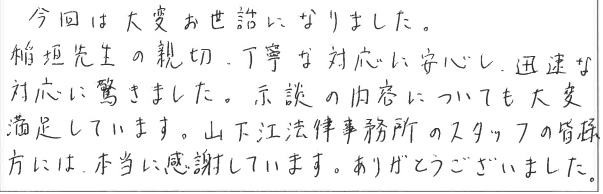 今回は大変お世話になりました。
稲垣先生の親切、丁寧な対応に安心し、迅速な
対応に驚きました。示談の内容についても大変
満足しています。山下江法律事務所のスタッフの皆様
方には、本当に感謝しています。ありがとうございました。